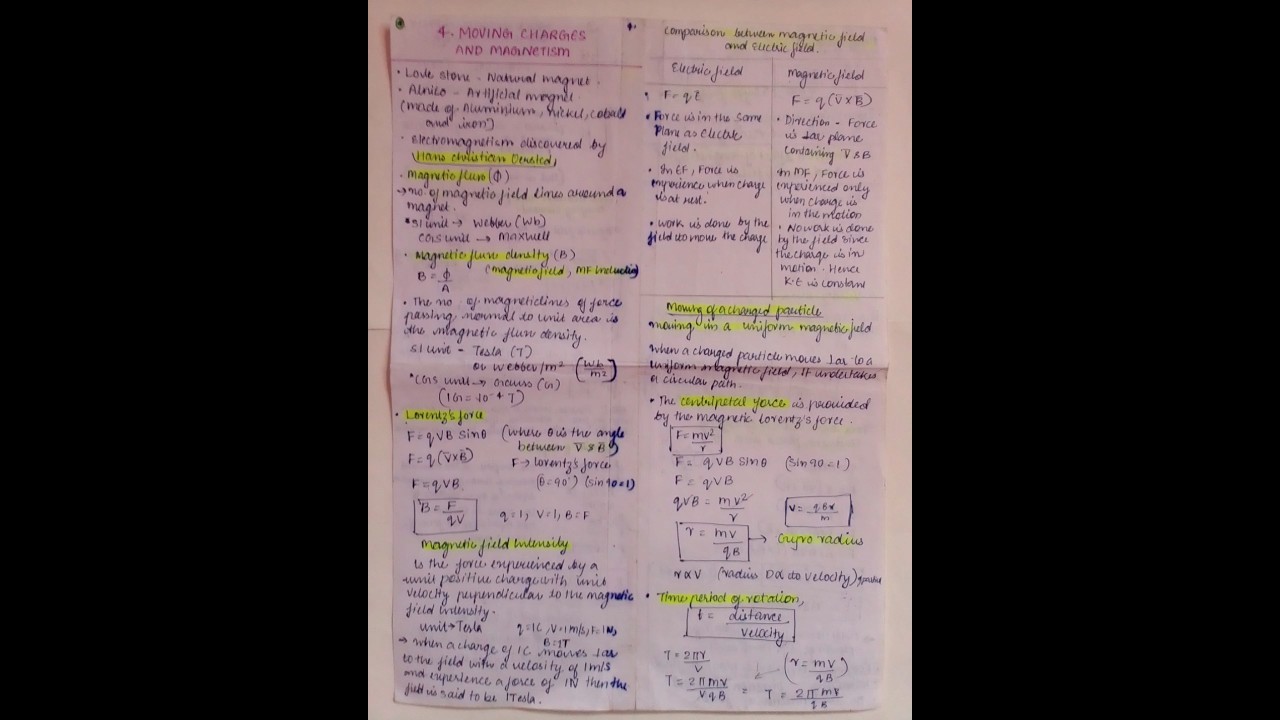 4. MOVING CHARGES
AND MAGNETISM
• Love stone - Natural magnet.
• Alnico - Artificial magnet
(made of Aluminium, nickel, cobalt
and iron)
• Electromagnetism discovered by
Hans christian Oersted,
• Magnetic flux (ϕ)
→ no. of magnetic field lines around a
magnet.
• SI unit → Webber (Wb)
CGS unit → Maxwell
• Magnetic flux density (B)
(magnetic field, MF induction)
B = ϕ/A
• The no. of magnetic lines of force
passing normal to unit area is
the magnetic flux density.
SI unit - Tesla (T)
or webber/m² (Wb/m²)
• CGS unit → Gauss (G)
(1G = 10⁻⁴ T)
• Lorentz's force
F = qVB Sinθ (where θ is the angle
between V̄ & B̄)
F = q(V̄×B̄) F → Lorentz's force
F = qVB (θ=90°) (sin 90=1)
B = F/qV q=1, V=1, B=F
Magnetic field Intensity
Is the force experienced by a
unit positive charge with unit
velocity perpendicular to the magnetic
field intensity.
unit → Tesla q=1C, V=1m/s, F=1N,
B=1T
→ when a charge of 1C moves ⊥ar
to the field with a velosity of 1m/s
and experience a force of 1N then the
field is said to be 1Tesla.
comparison between magnetic field
and Electric field.
Electric field
• F = qE
• Force is in the same
Plane as Electric
field.
• In EF, Force is
experience when charge
is at rest.
• work is done by the
field to move the charge
Magnetic field
F = q(V̄×B̄)
• Direction - Force
is ⊥ar plane
containing V̄ & B
In MF, Force is
experienced only
when charge is
in the motion
• No work is done
by the field since
the charge is in
motion. Hence
K.E is constant
Moving of a charged particle
moving in a uniform magnetic field
when a charged particle moves ⊥ar to a
uniform magnetic field, it undertakes
a circular path.
• The centripetal force is provided
by the magnetic Lorentz's force.
F = mv²/r
F = qVB Sinθ (Sin 90=1)
F = qVB
qVB = mv²/r V = qBr/m
r = mv/qB → Gyro radius
r∝V (radius Dα to velocity)
• Time period of rotation,
t = distance/velocity
T = 2πr/V (r = mV/qB)
T = 2πmv/VqB = T = 2πmv/qB